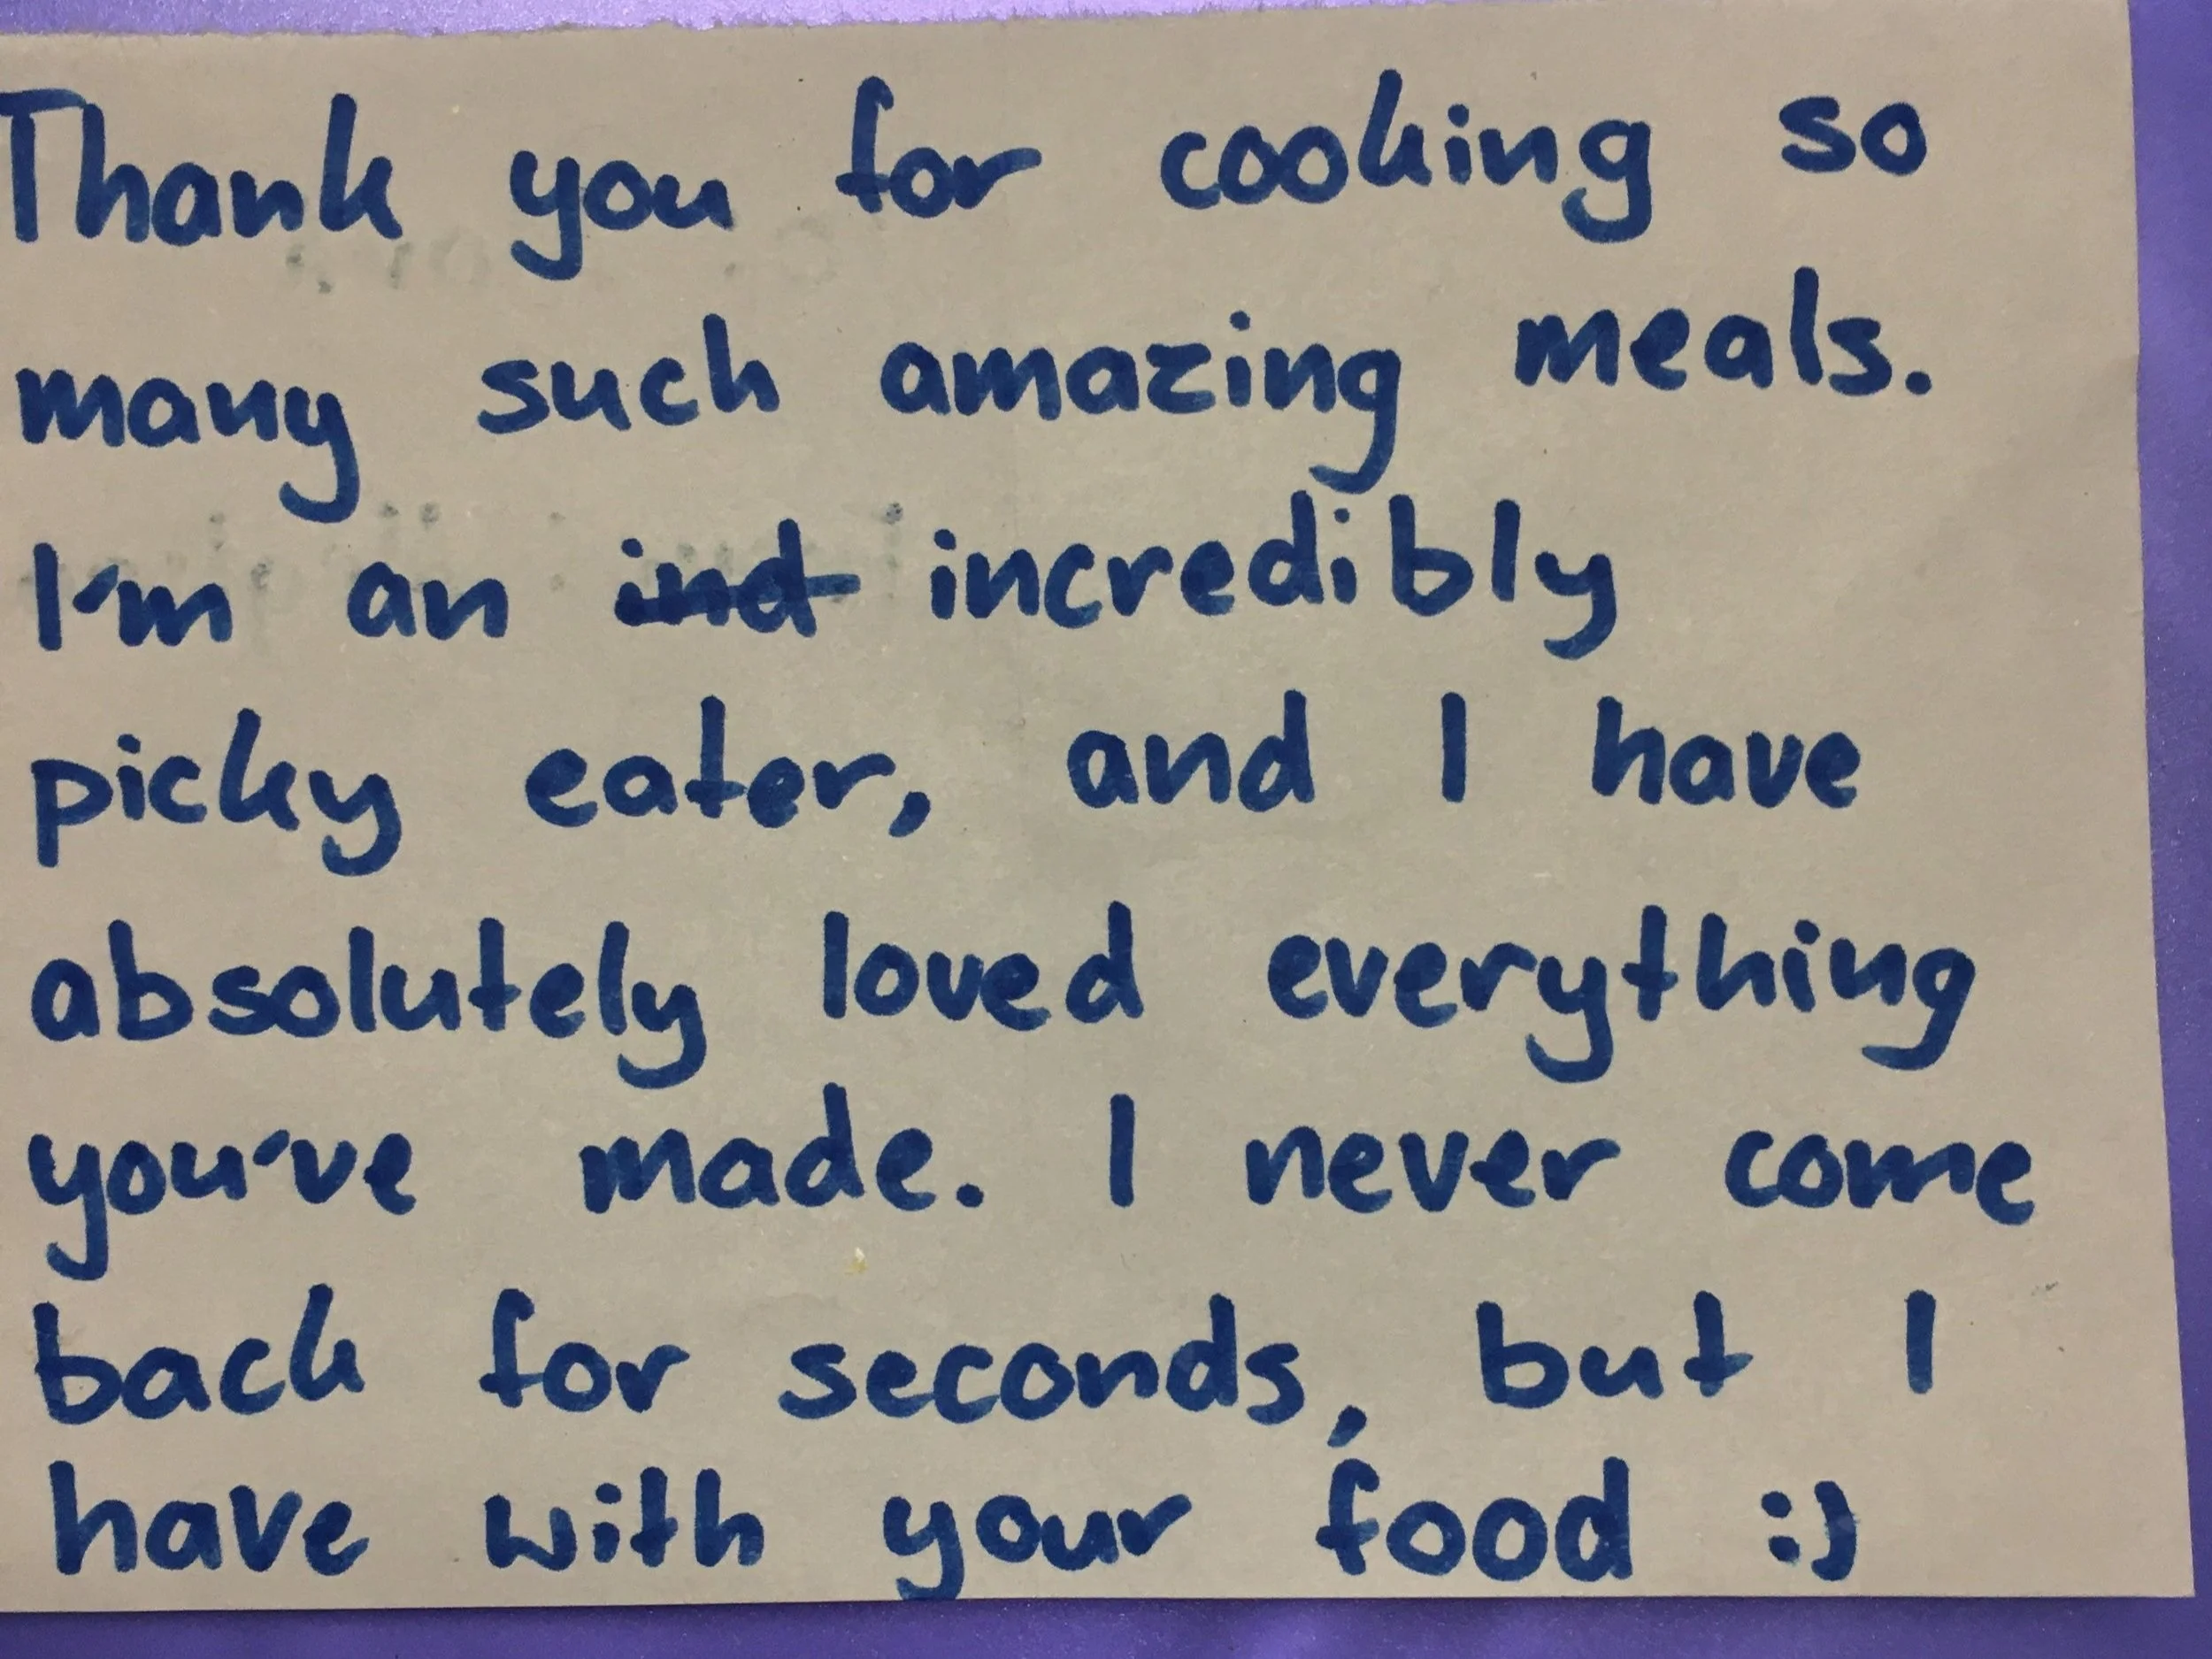 Thank you for cooking so
many such amazing meals.
I'm an ind incredibly
picky eater, and I have
absolutely loved everything
you've made. I never come
back for seconds, but I
have with your food :)